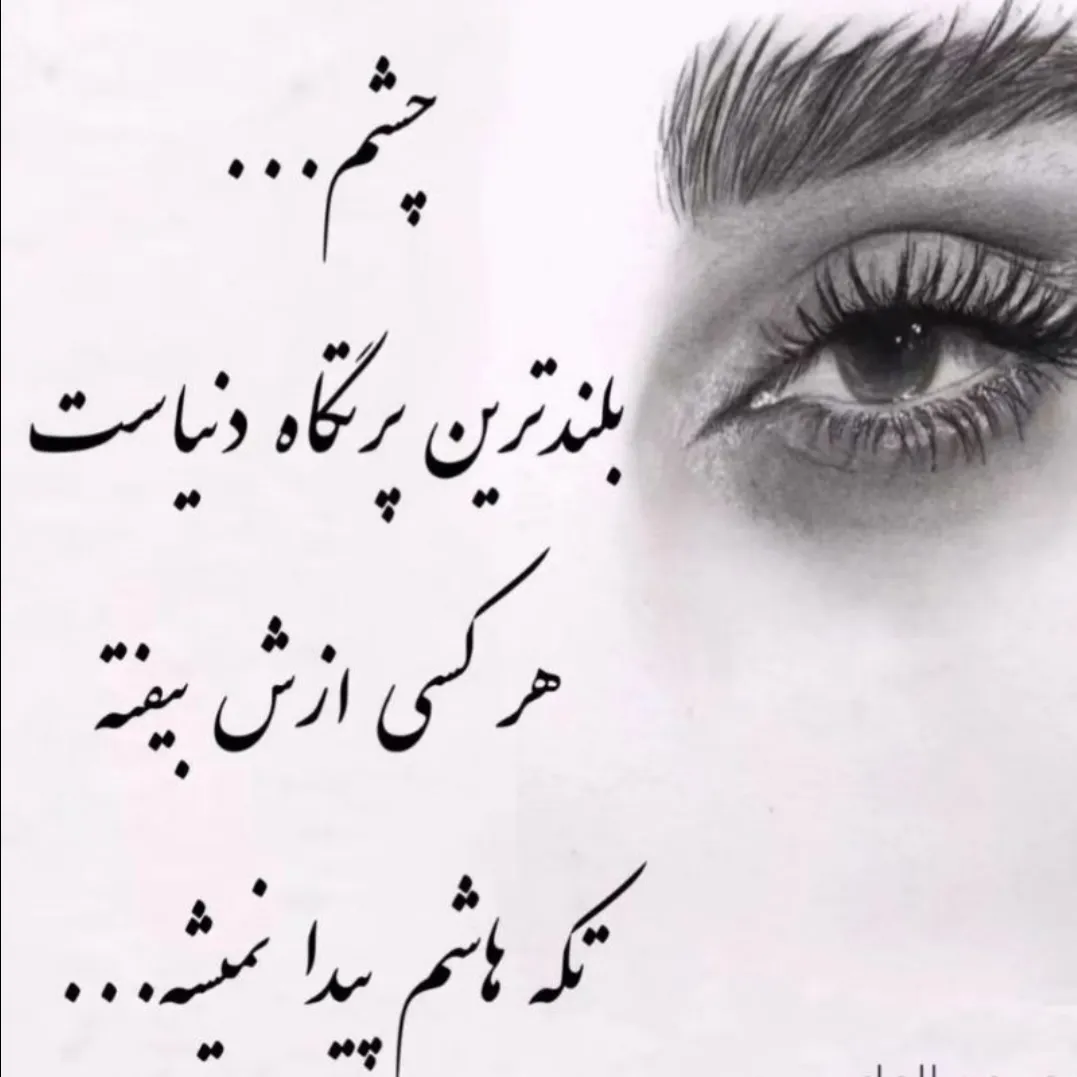 چشم...
بلندترین پرتگاه دنیاست
هر کسی ازش بیفته
تکه هاشم پیدا نمیشه...